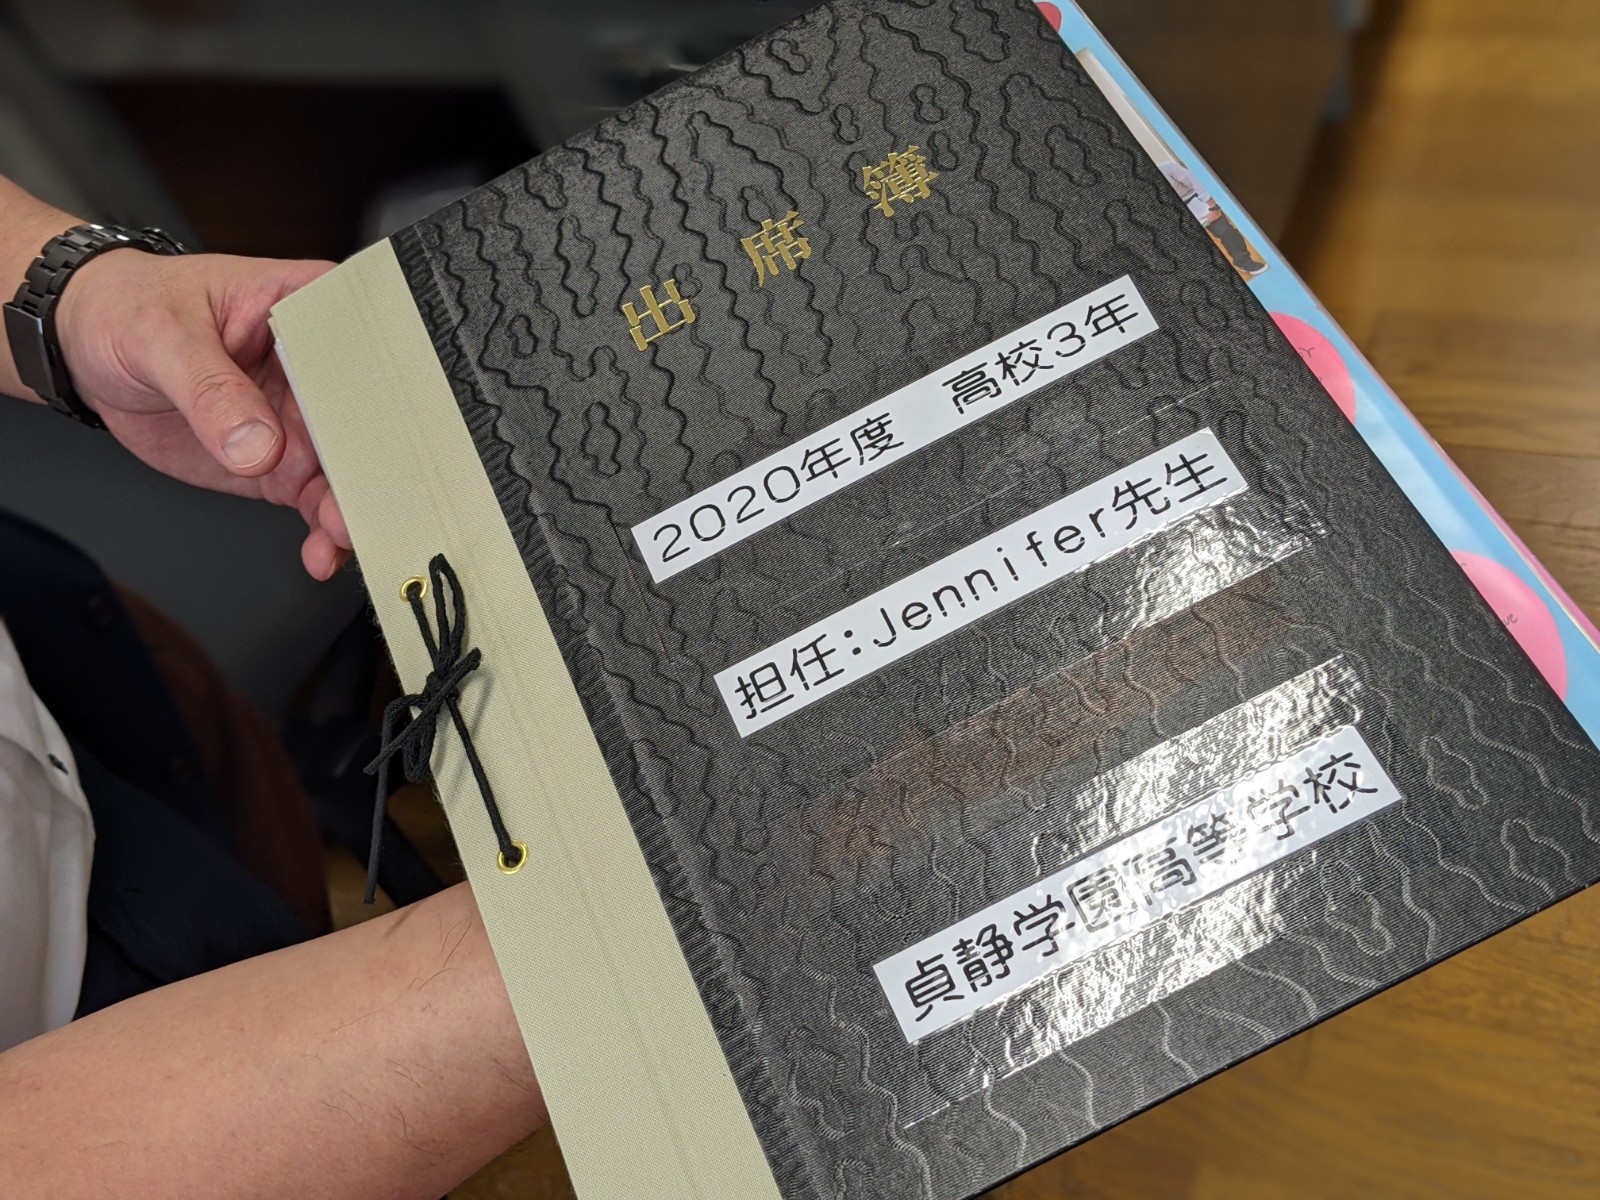 出席簿
2020年度　高校3年
担任：Jennifer先生
貞静学園高等学校